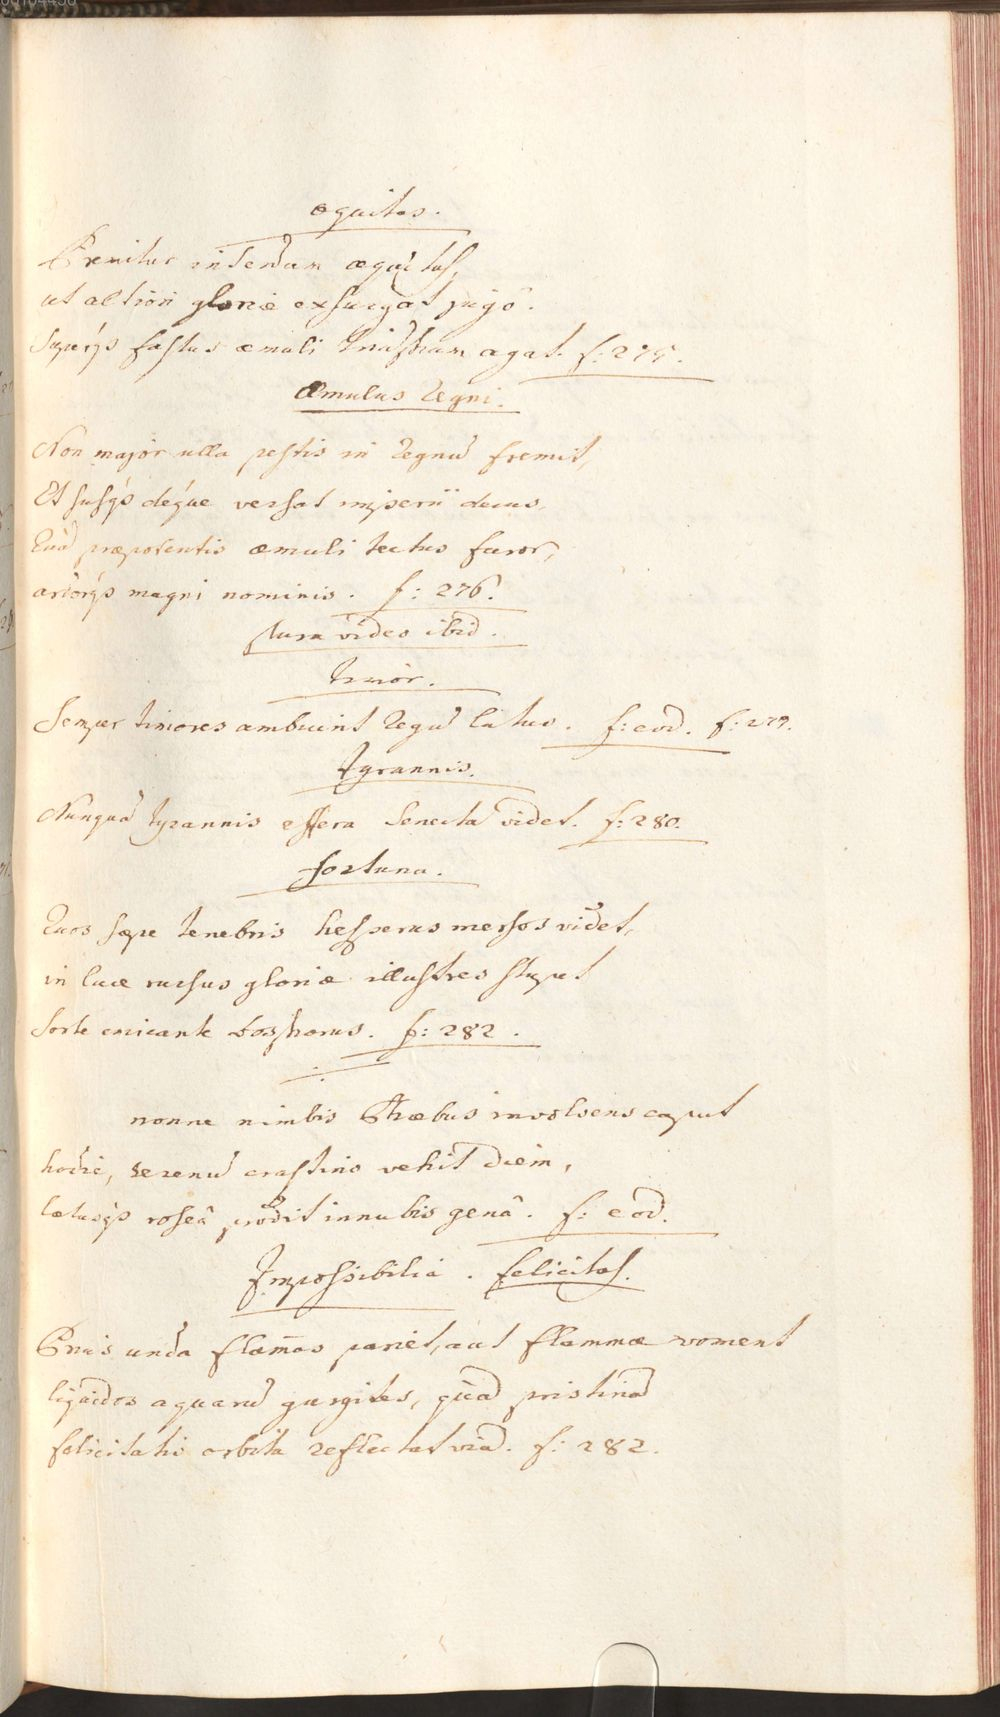 æquitas.
Premitur interdum æquitas,
ut altiori gloriæ exsurgat jugo.
Superq̃ fastus æmuli triumphum agat. f: 275.
Æmulus Regni.
Non major ulla pestis in regnũ fremit,
Et susq̃ deque versat imperii decus,
Quã præpotentis æmuli tectus furor,
ardorq̃ magni nominis. f: 276.
plura vides ibid.
Timor.
Semper timores ambiunt Regũ latus. f: eod. f: 279.
Tyrannis.
Nunquã tyrannis effera senectã videt. f: 280.
fortuna.
Quos sæpe tenebris hesperus mersos videt,
in luce rursus gloriæ illustres stupet
sorte emicante bosphorus. f: 282.
nonne nimbis Phæbus involvens caput
hodie, serenũ crastino vehit diem,
lætusq̃ roseâ prodit innubis genâ. f: eod.
Impossibilia. felicitas.
Prius unda flam̃as pariet, aut flammæ voment
liquidos aquarũ gurgites, quã pristinã
felicitatis orbita reflectat viã. f: 282.